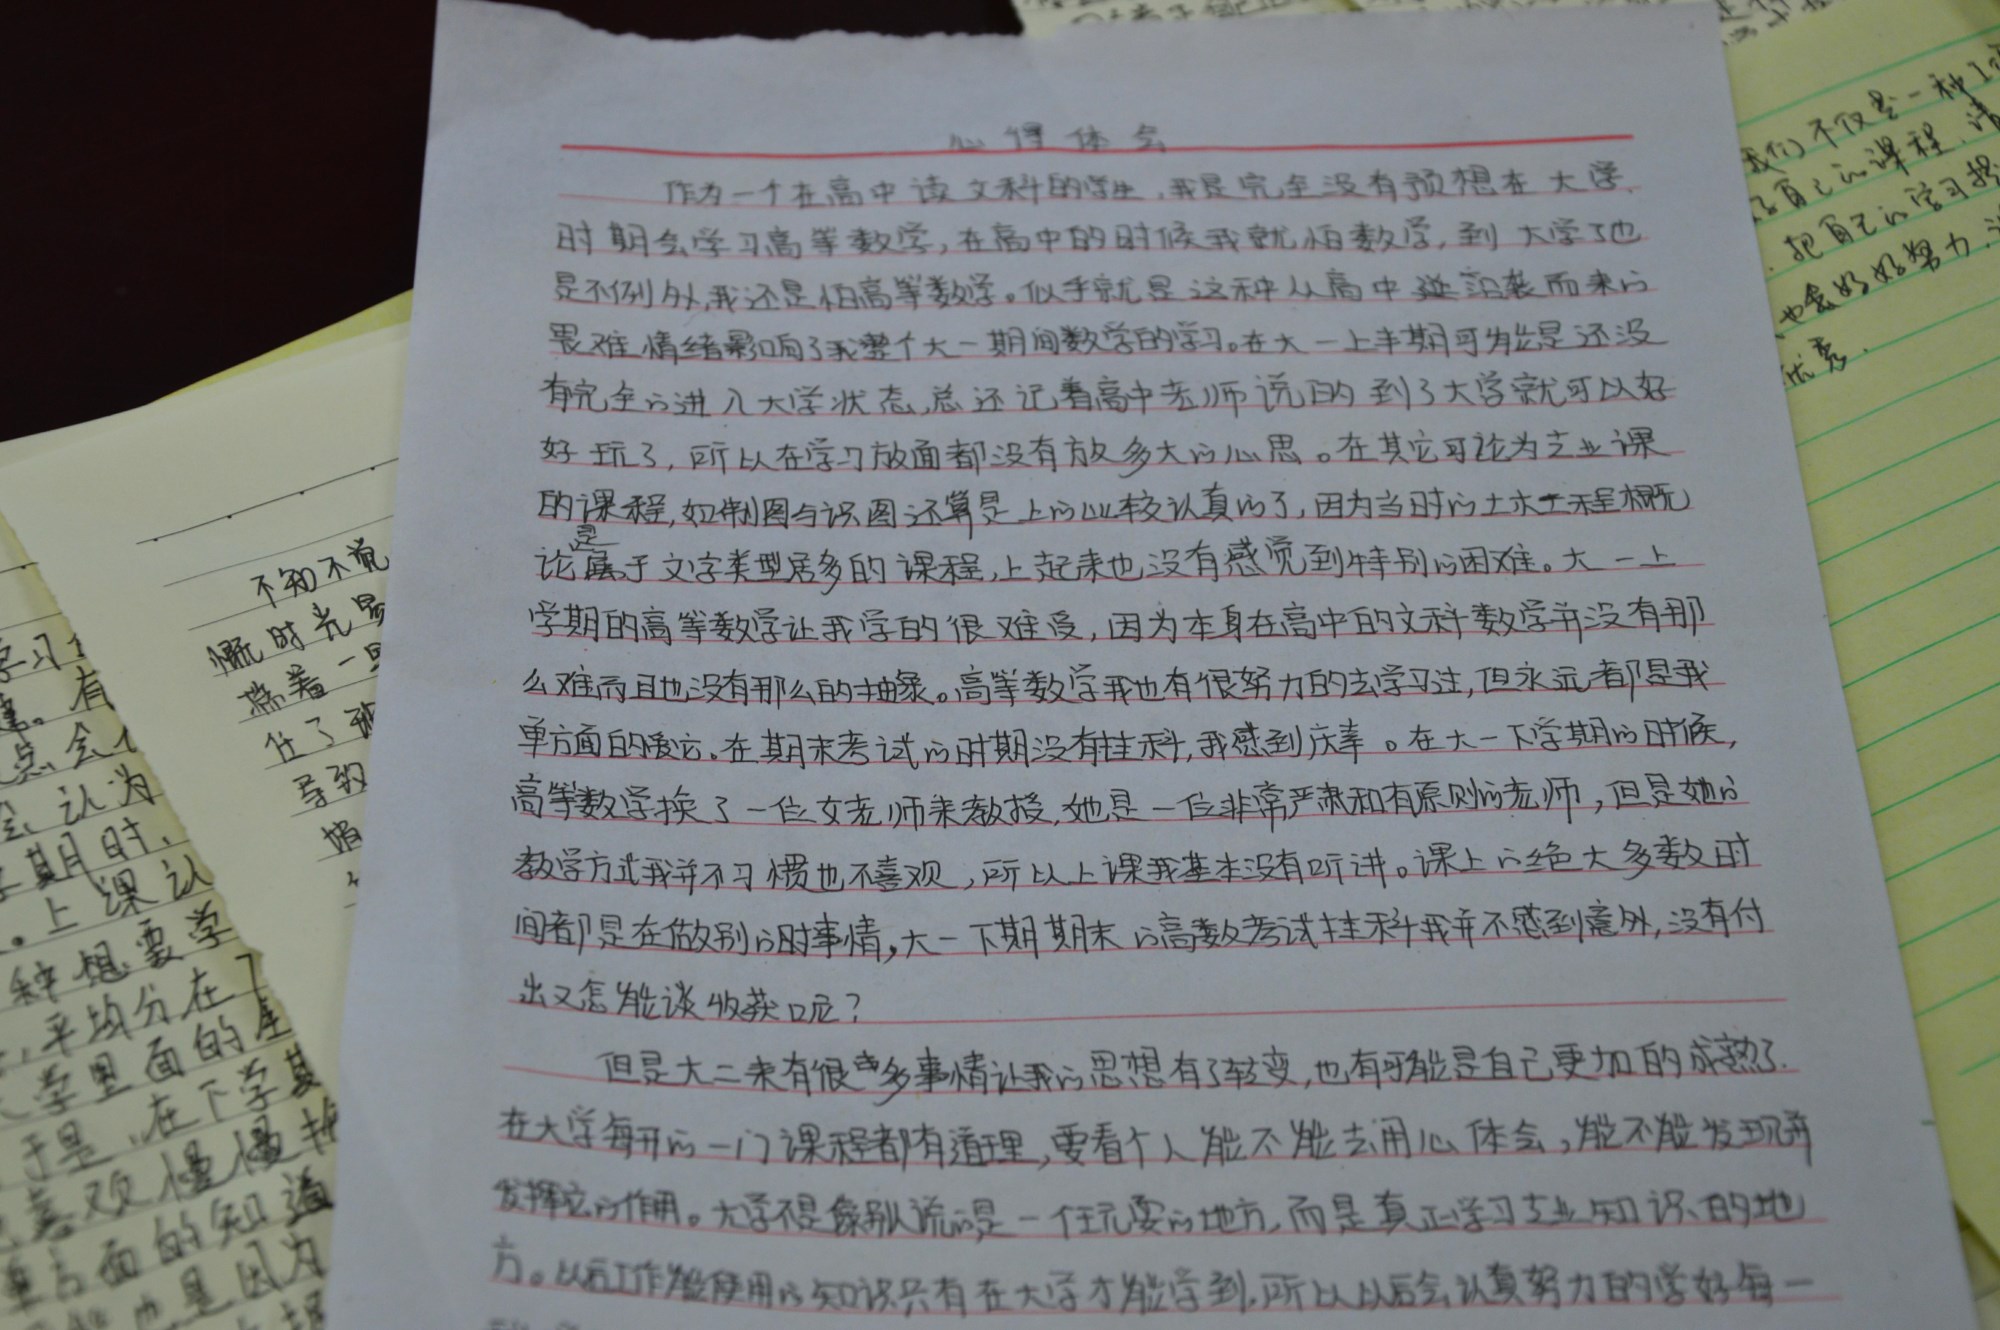 心得体会
作为一个在高中读文科的学生,我是完全没有预想在大学
时期会学习高等数学,在高中的时候我就怕数学,到大学了也
是不例外,我还是怕高等数学。似乎就是这种从高中延沿袭而来的
畏难情绪影响了我整个大一期间数学的学习。在大一上半期可能是还没
有完全的进入大学状态,总还记着高中老师说的到了大学就可以好
好玩了,所以在学习放面都没有放多大的心思。在其它可论为专业课
的课程,如制图与识图还算是上的比较认真的了,因为当时的土木工程概
论是属于文字类型居多的课程,上起来也没有感觉到特别的困难。大一上
学期的高等数学让我学的很难受,因为本身在高中的文科数学并没有那
么难而且也没有那么的抽象。高等数学我也有很努力的去学习过,但永远都是我
单方面的爱它。在期末考试的时期没有挂科,我感到庆幸。在大一下学期的时候,
高等数学换了一位女老师来教授,她是一位非常严肃和有原则的老师,但是她的
教学方式我并不习惯也不喜观,所以上课我基本没有听讲。课上的绝大多数时
间都是在做别的时事情,大一下期期末的高数考试挂科我并不感到意外,没有付
出又怎能谈收获呢?
但是大二来有很多事情让我的思想有了转变,也有可能是自己更加的成熟了.
在大学每开的一门课程都有道理,要看个人能不能去用心体会,能不能发现并
发挥它的作用。大学不是像别人说的是一任玩耍的地方,而是真正学习专业知识的地
方。以后工作能使用的知识只有在大学才能学到,所以以后会认真努力的学好每一
我们不仅是一种
好自己的课程,请
把自己的学习
也会好好努力
优秀.
不知不觉
慨时光
着一
住了
导致
学习
有
点会
认为
学期时,
。上课认
种想要学
,平均分在了
大学里面的
于是,在下学期
喜欢慢慢
单方面的知道
也是因为